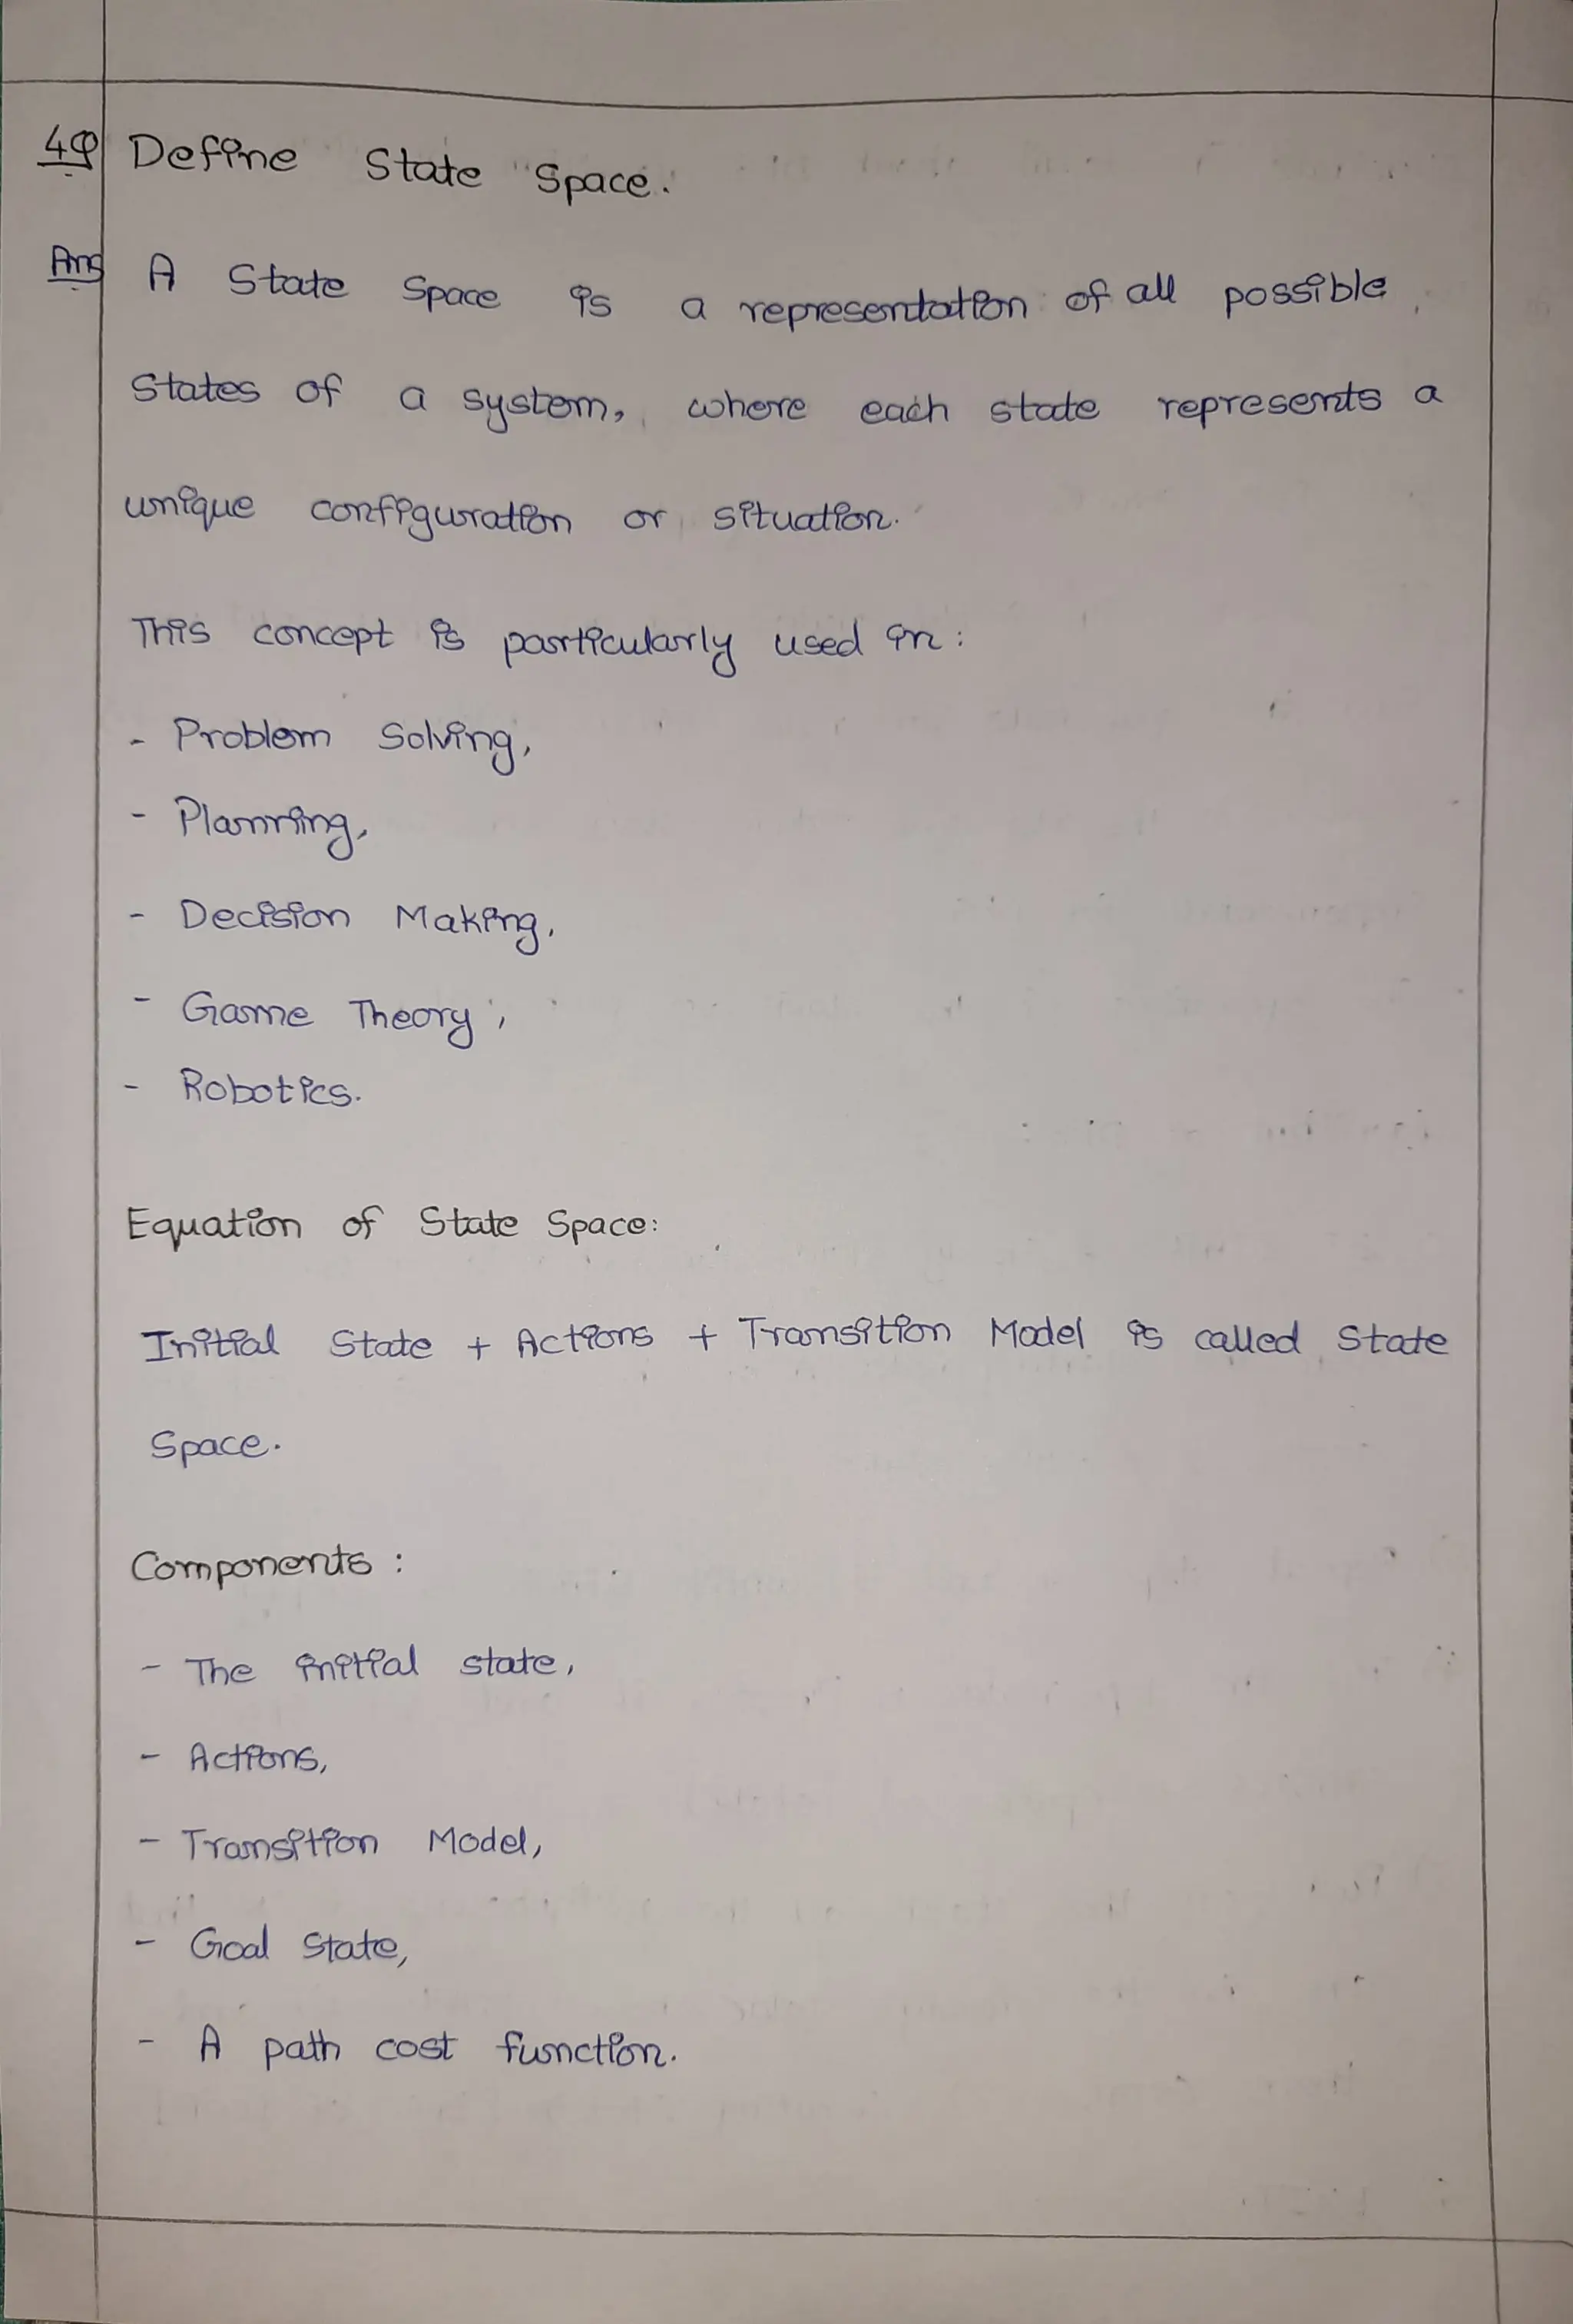 4Q Define State Space.
Ans A State Space is a representation of all possible
States of a system, where each state represents a
unique configuration or situation.
This concept is particularly used in:
- Problem Solving,
- Planning,
- Decision Making,
- Game Theory,
- Robotics.
Equation of State Space:
Initial State + Actions + Transition Model is called State
Space.
Components :
- The initial state,
- Actions,
- Transition Model,
- Goal State,
- A path cost function.